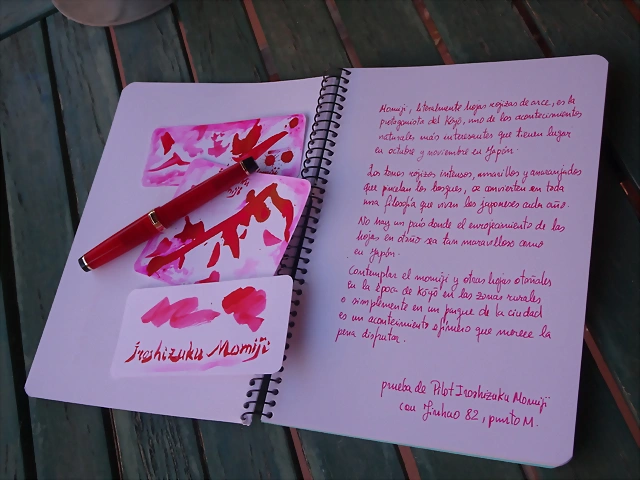 Iroshizuku Momiji
Momiji, literalmente hojas rojizas de arce, es la
protagonista del Kōyō, uno de los acontecimientos
naturales más interesantes que tienen lugar
en octubre y noviembre en Japón.
Los tonos rojizos intensos, amarillos y anaranjados
que pincelan los bosques, se convierten en toda
una filosofía que viven los japoneses cada año.
No hay un país donde el enrojecimiento de las
hojas en otoño sea tan maravilloso como
en Japón.
Contemplar el momiji y otras hojas otoñales
en la época de Kōyō en las zonas rurales
o simplemente en un parque de la ciudad
es un acontecimiento efímero que merece la
pena disfrutar.
prueba de Pilot Iroshizuku Momiji
con Jinhao 82, punto M.